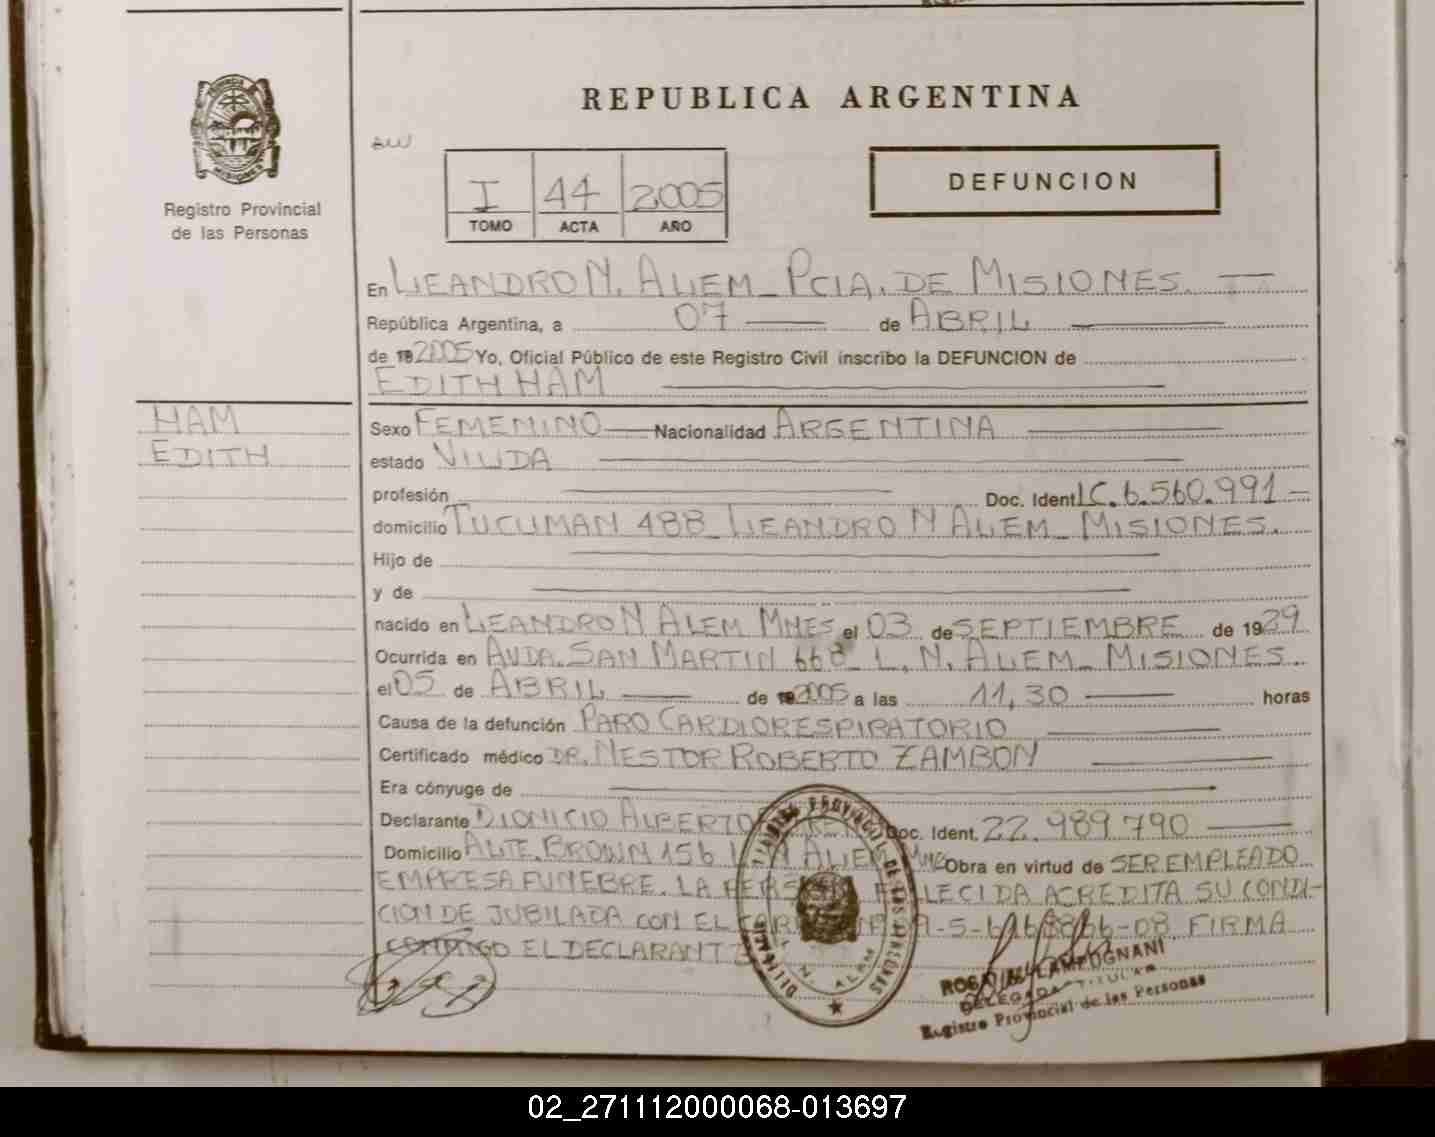 REPUBLICA ARGENTINA
PROVINCIA
MISIONES
Registro Provincial
de las Personas
I 44 2005
TOMO ACTA AÑO
DEFUNCION
En LEANDRO N. ALEM_PCIA. DE MISIONES.
República Argentina, a 07 de ABRIL
de 2005 Yo, Oficial Público de este Registro Civil inscribo la DEFUNCION de
EDITH HAM
HAM
EDITH
Sexo FEMENINO Nacionalidad ARGENTINA
estado VIUDA
profesión Doc. Ident LC. 6.560.991
domicilio TUCUMAN 488_LEANDRO N ALEM_MISIONES.
Hijo de
y de
nacido en LEANDRO N ALEM MNES el 03 de SEPTIEMBRE de 1939
Ocurrida en AVDA. SAN MARTIN 668_L. N. ALEM_MISIONES.
el 05 de ABRIL de 2005 a las 11,30 horas
Causa de la defunción PARO CARDIORESPIRATORIO
Certificado médico DR. NESTOR ROBERTO ZAMBON
Era cónyuge de
Declarante DIONICIO ALBERTO Doc. Ident. 22.989.790
Domicilio ALTE. BROWN 156 L N ALEM MNES Obra en virtud de SER EMPLEADO
EMPRESA FUNEBRE. LA PERSONA FALLECIDA ACREDITA SU CONDI-
CION DE JUBILADA CON EL FIRMA
CONMIGO EL DECLARANTE
L. N. ALEM
LAMPUGNANI
DELEGADA TITULAR
Registro Provincial de las Personas
02_271112000068-013697